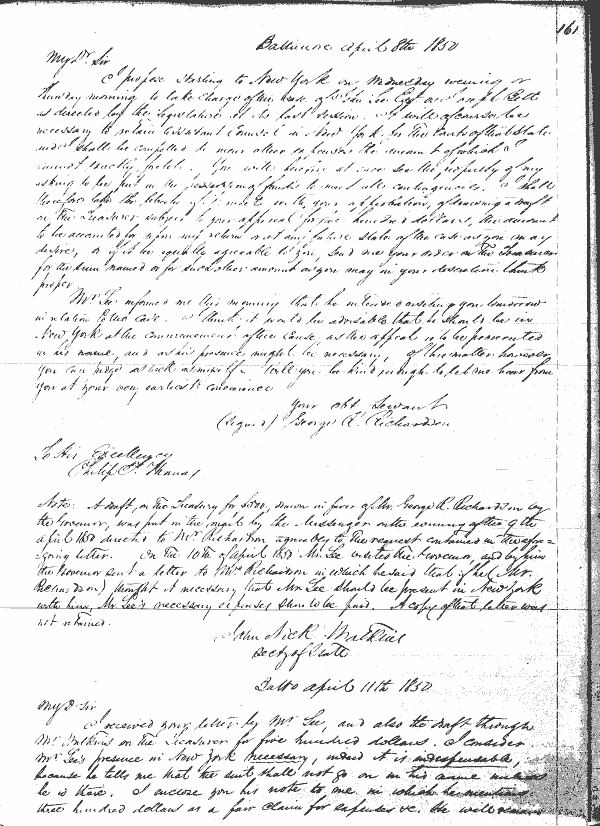 161
Baltimore April 8th 1850
My Dr Sir
I propose starting to New York on Wednesday evening or
Thursday morning to take charge of the case of Jno Lee Esqr
as directed by the Legislature at its last session. It will of course be
necessary to retain assistant Counsel in New York in the Courts of that State
and I shall be compelled to incur other expenses the amount of which I
cannot exactly foretell. You will therefore at once see the propriety of my
asking to be put in the possession of funds to meet all contingencies. I shall
therefore take the liberty if it meets with your approbation, of drawing a draft
on the Treasurer subject to your approval for five hundred dollars, the amount
to be accounted for upon my return or at any future state of the case as you may
desire, or if it be equally agreeable to you, send me your order on the Treasurer
for the sum named or for such other amount as you may in your discretion think
proper
Mr. Lee informed me this morning that he intended visiting you tomorrow
in relation to the case. I think it would be advisable that he should be in
New York at the commencement of the Cause, as the appeal is to be prosecuted
in his name, and as his presence might be necessary, of this matter however
you can judge as well as myself. Will you be kind enough to let me hear from
you at your very earliest convenience
Your obt Servant
(signed) George R. Richardson
To His Excellency
Philip F. Thomas
Note: A draft, on the Treasury for $500, drawn in favor of Mr. George R. Richardson by
the Governor, was put in the mail by the Messenger on the evening of the 9th
April 1850 directed to Mr. Richardson agreeably to the request contained in the afore=
going letter. On the 10th of April 1850 Mr. Lee visited the Governor, and by him
the Governor sent a letter to Mr. Richardson in which he said that if he (Mr.
Richardson) thought it necessary that Mr. Lee should be present in New York
with him, Mr. Lee's necessary expenses should be paid. A copy of that letter was
not retained.
John Nick Watkins
Secty of State
Balto April 11th 1850
My Dr Sir
I received your letter by Mr. Lee, and also the draft through
Mr. Watkins on the Treasurer for five hundred dollars. I consider
Mr. Lee's presence in New York necessary, indeed it is indispensable,
because he tells me that the suit shall not go on in his name unless
he is there. I enclose you his note to me in which he mentions
three hundred dollars as a fair claim for expenses &c. He will